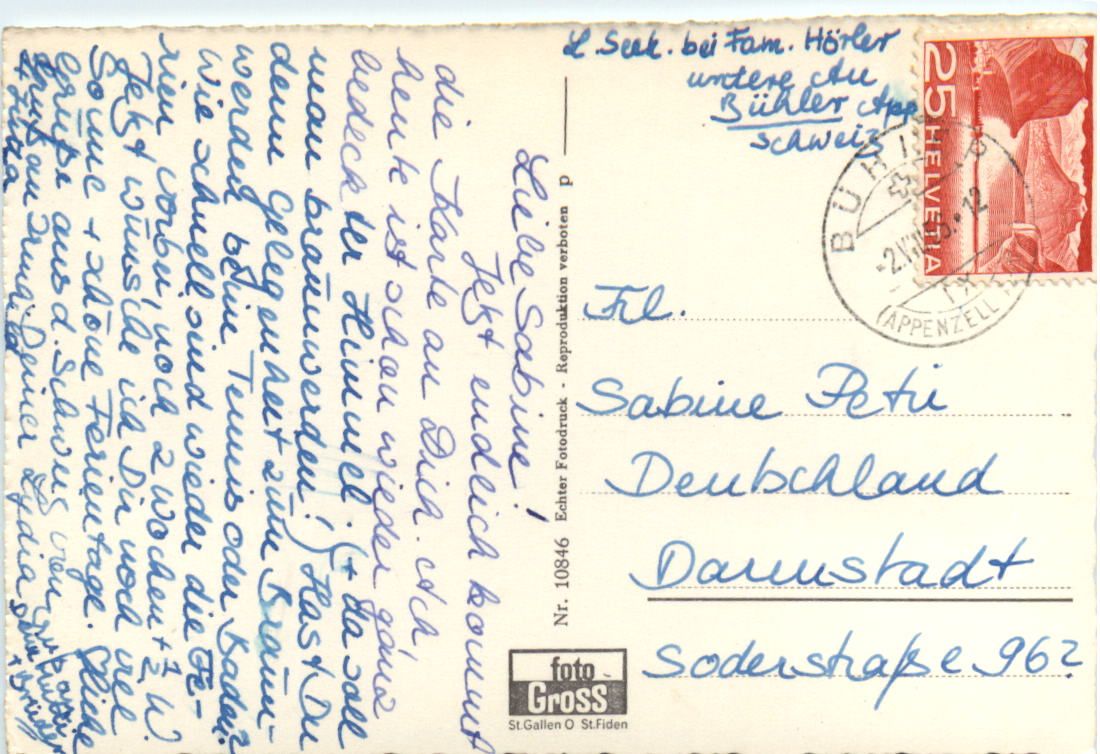 L. Seek. bei Fam. Hörler
untere Au
Bühler App
Schweiz
25
HELVETIA
BÜHLER
-2.VIII.5 -12
(APPENZELL)
Liebe Sabine!
Jetzt endlich kommt
die Karte an Dich. Ach
heute ist schon wieder ganz
bedeckt der Himmel; + da soll
man braunwerden! Hast Du
denn Gelegenheit zum Braun-
werden beim Tennis oder Baden?
Wie schnell sind wieder die Fe-
rien vorbei, noch 2 Wochen + ½ W.
Jetzt wünsche ich Dir noch viel
Sonne + schöne Ferientage. Herzliche
Grüße aus d. Schweiz von
Deiner Lydia
Gruß an Trundi
+ Jutta
Nr. 10846 Echter Fotodruck - Reproduktion verboten p
Frl.
Sabine Petri
Deutschland
Darmstadt
Soderstraße 96 2
foto
Gross
St.Gallen O St.Fiden